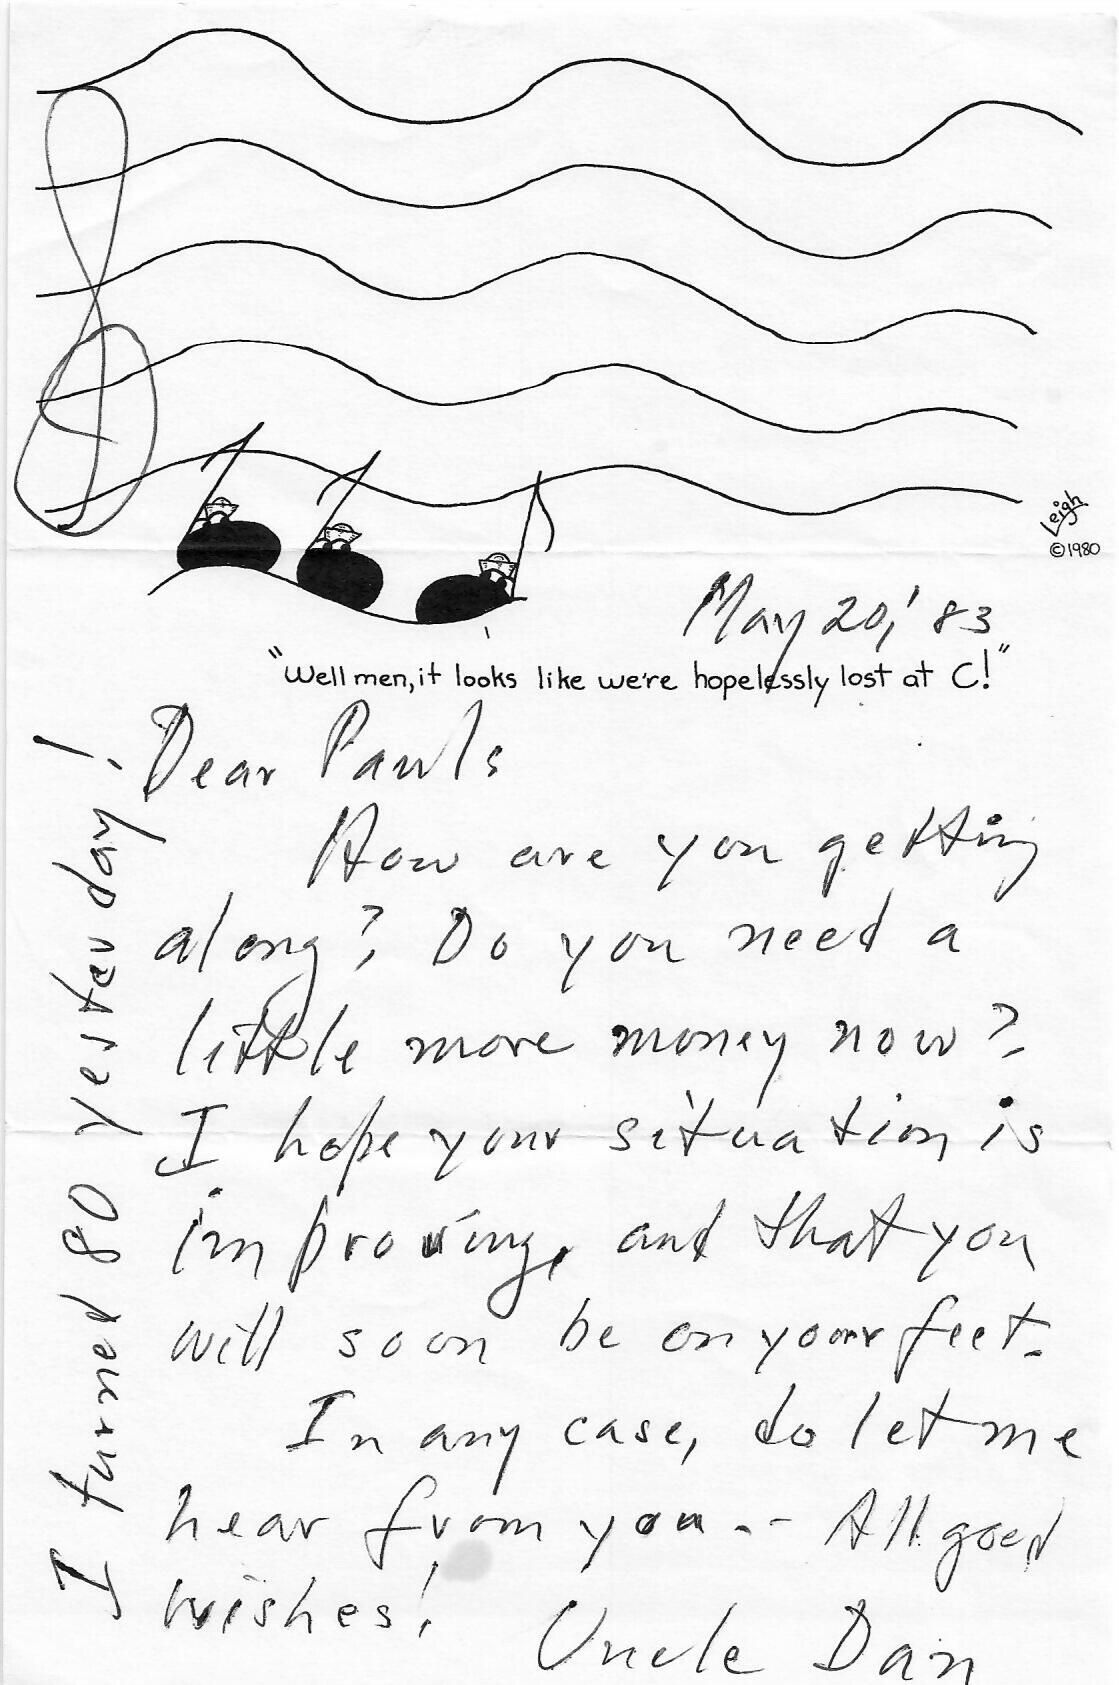 Leigh
©1980
May 20, '83
"Well men, it looks like we're hopelessly lost at C!"
Dear Pauls
How are you getting
along? Do you need a
little more money now?
I hope your situation is
improving, and that you
will soon be on your feet.
In any case, do let me
hear from you -- All good
wishes!
Uncle Dan
I turned 80 yesterday!